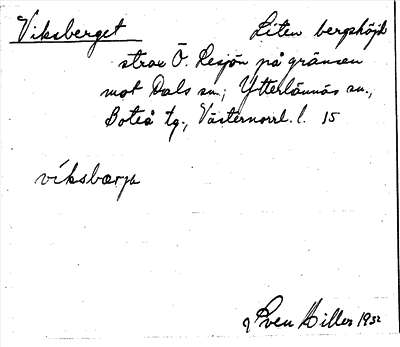 Viksberget Liten bergshöjd
strax Ö. Resjön på gränsen
mot Dals sn., Ytterlännäs sn.,
Boteå tg., Västernorrl. l. 15
víksbærja
Sven Hiller 1932